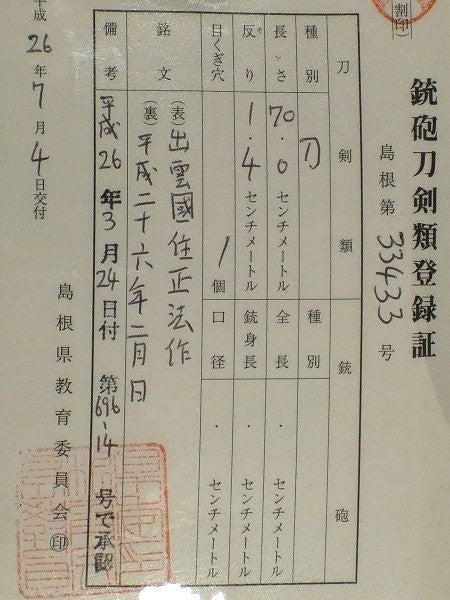 銃砲刀剣類登録証
(割印)
島根第33433号
刀剣類
銃砲
種別 刀
種別
長さ 70.0センチメートル
全長 ・ センチメートル
反り 1.4センチメートル
銃身長 ・ センチメートル
目くぎ穴 1個
口径 ・ センチメートル
銘文
(表)出雲國住正法作
(裏)平成二十六年二月日
備考 平成26年3月24日付 第696-14号で承認
平成26年7月4日交付
島根県教育委員会㊞